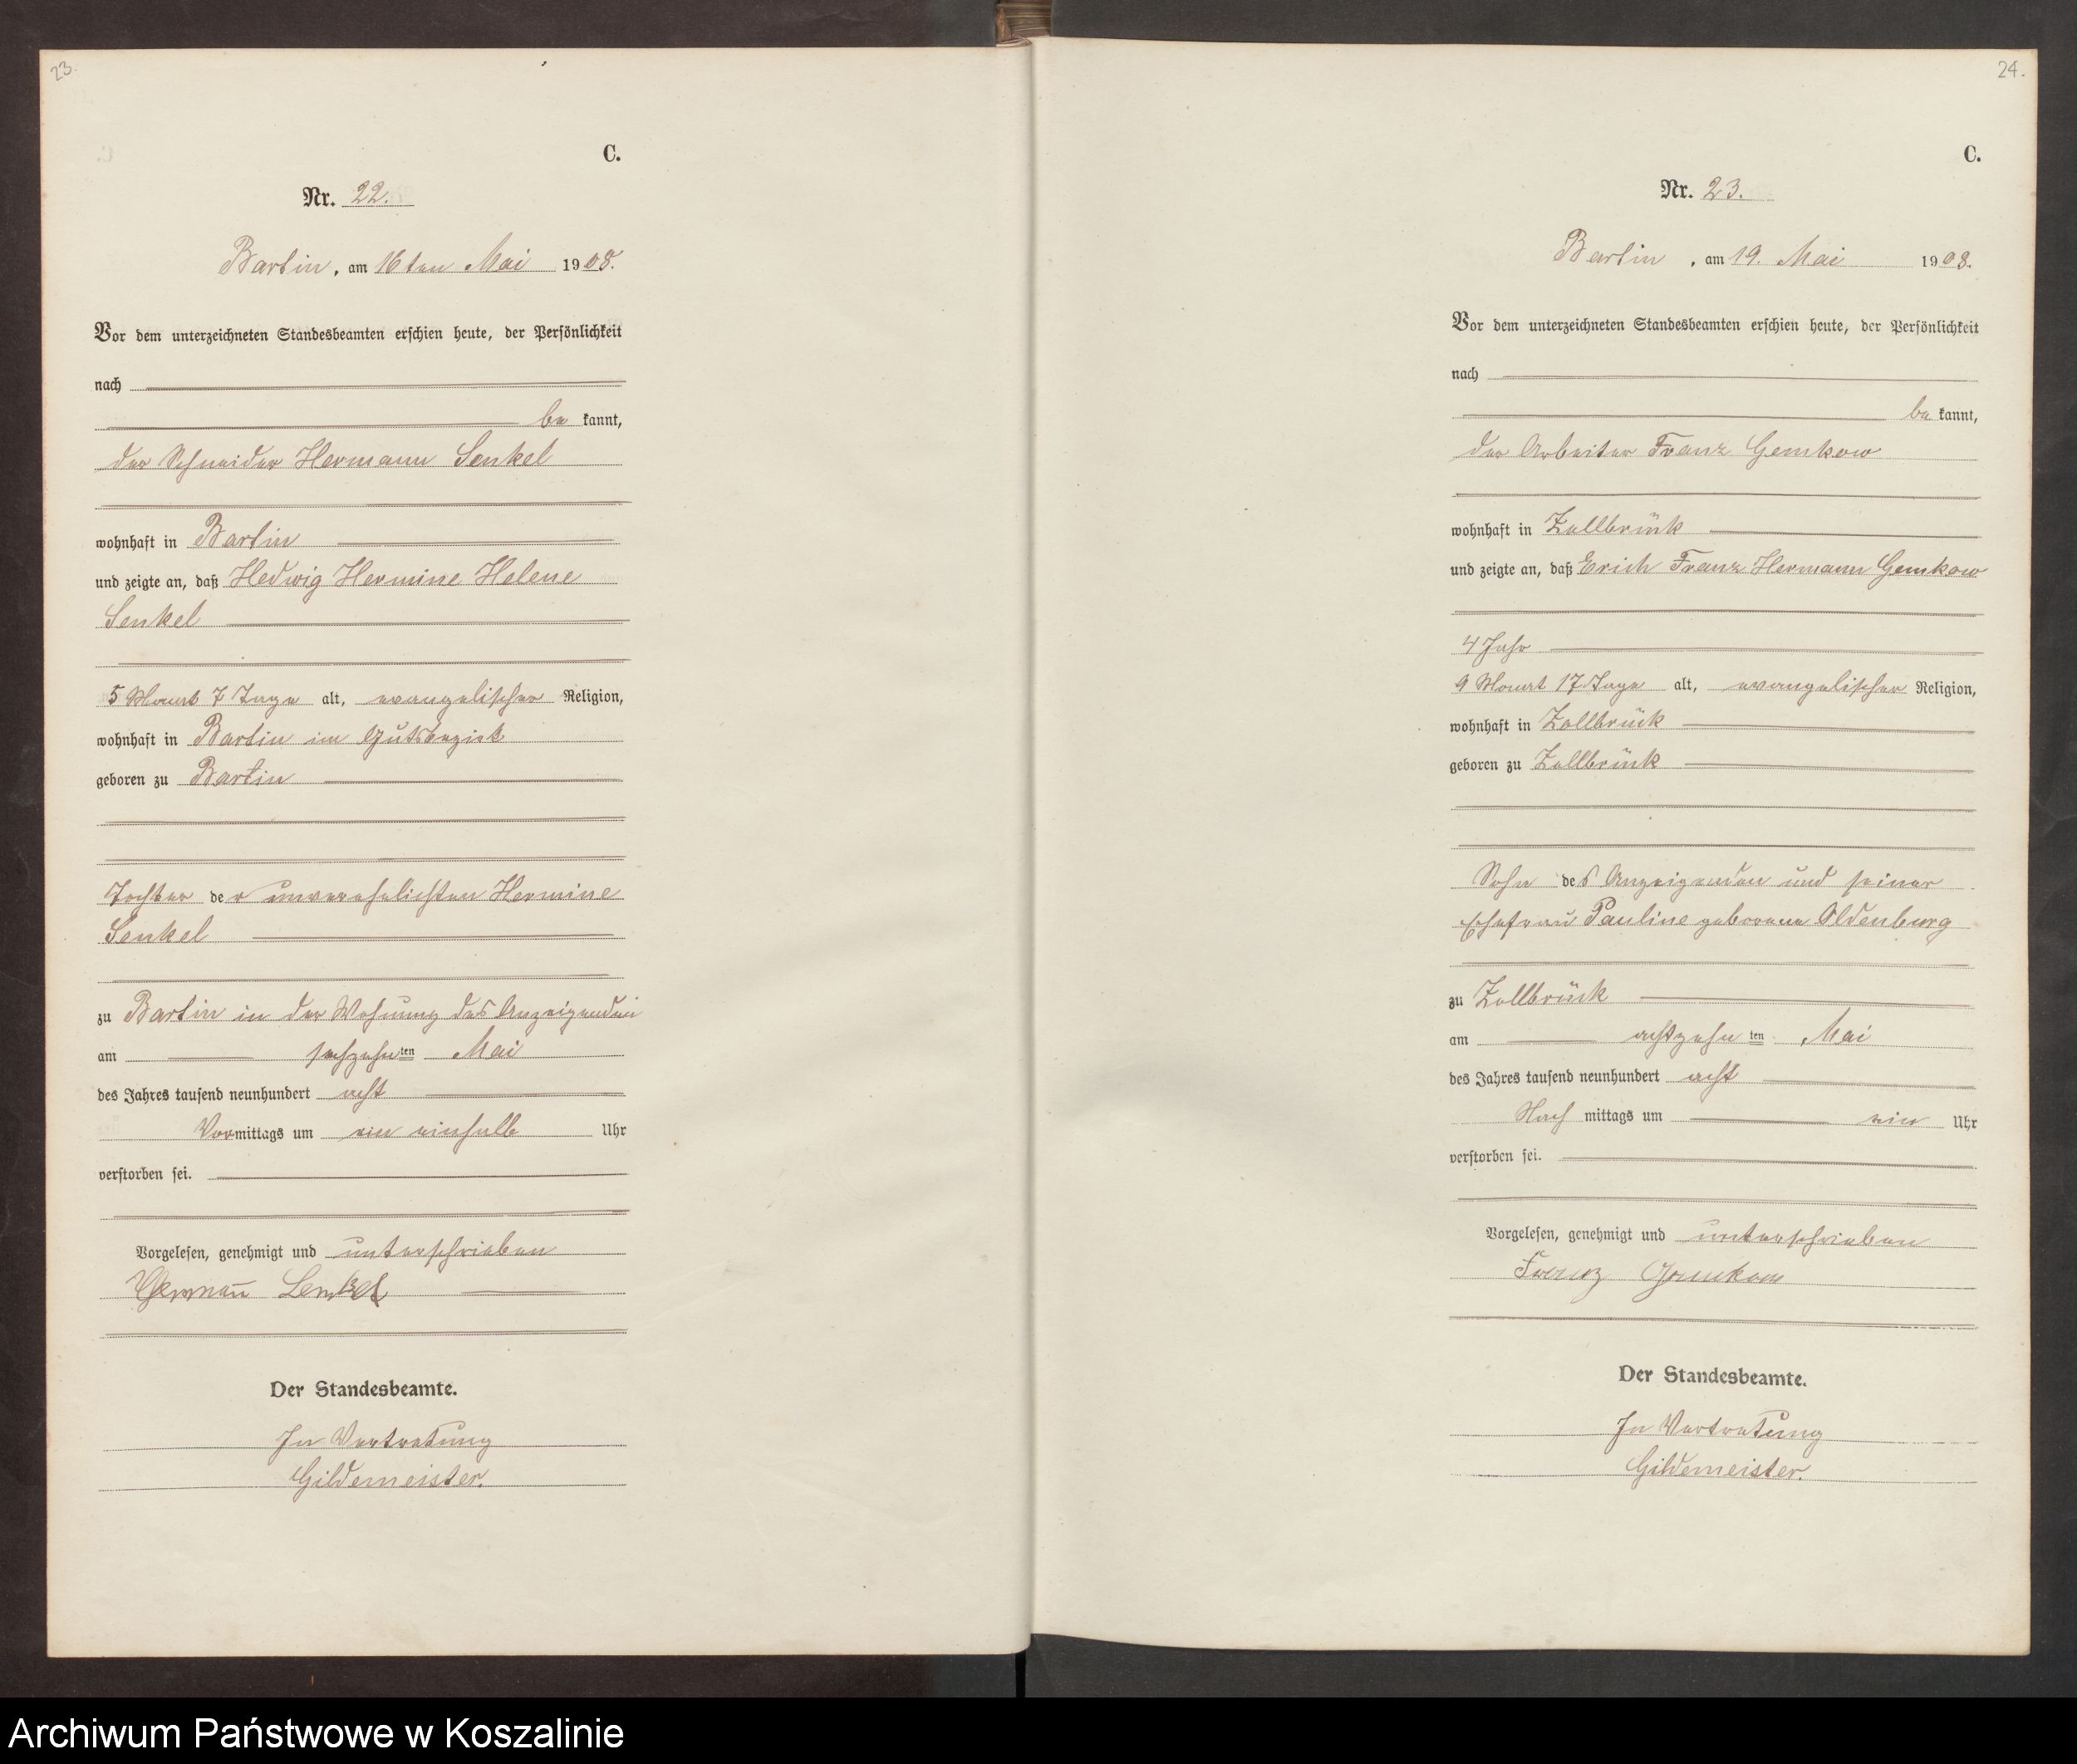 23.
C.
Nr. 22.
Bartin, am 16ten Mai 1908.
Vor dem unterzeichneten Standesbeamten erschien heute, der Persönlichkeit
nach
be kannt,
der Schneider Hermann Senkel
wohnhaft in Bartin
und zeigte an, daß Hedwig Hermine Helene
Senkel
5 Monat 7 Tage alt, evangelischer Religion,
wohnhaft in Bartin im Gutsbezirk
geboren zu Bartin
Tochter der unverehelichten Hermine
Senkel
zu Bartin in der Wohnung des Anzeigenden
am sechzehnten Mai
des Jahres tausend neunhundert acht
Vormittags um ein einhalb Uhr
verstorben sei.
Vorgelesen, genehmigt und unterschrieben
Hermann Senkel
Der Standesbeamte.
In Vertretung
Gildemeister.
24.
C.
Nr. 23.
Bartin, am 19. Mai 1908.
Vor dem unterzeichneten Standesbeamten erschien heute, der Persönlichkeit
nach
be kannt,
der Arbeiter Franz Gemkow
wohnhaft in Zollbrück
und zeigte an, daß Erich Franz Hermann Gemkow
4 Jahr
9 Monat 17 Tage alt, evangelischer Religion,
wohnhaft in Zollbrück
geboren zu Zollbrück
Sohn des Anzeigenden und seiner
Ehefrau Pauline geborene Oldenburg
zu Zollbrück
am achtzehnten Mai
des Jahres tausend neunhundert acht
Nach mittags um ein Uhr
verstorben sei.
Vorgelesen, genehmigt und unterschrieben
Franz Gemkow
Der Standesbeamte.
In Vertretung
Gildemeister.
Archiwum Państwowe w Koszalinie